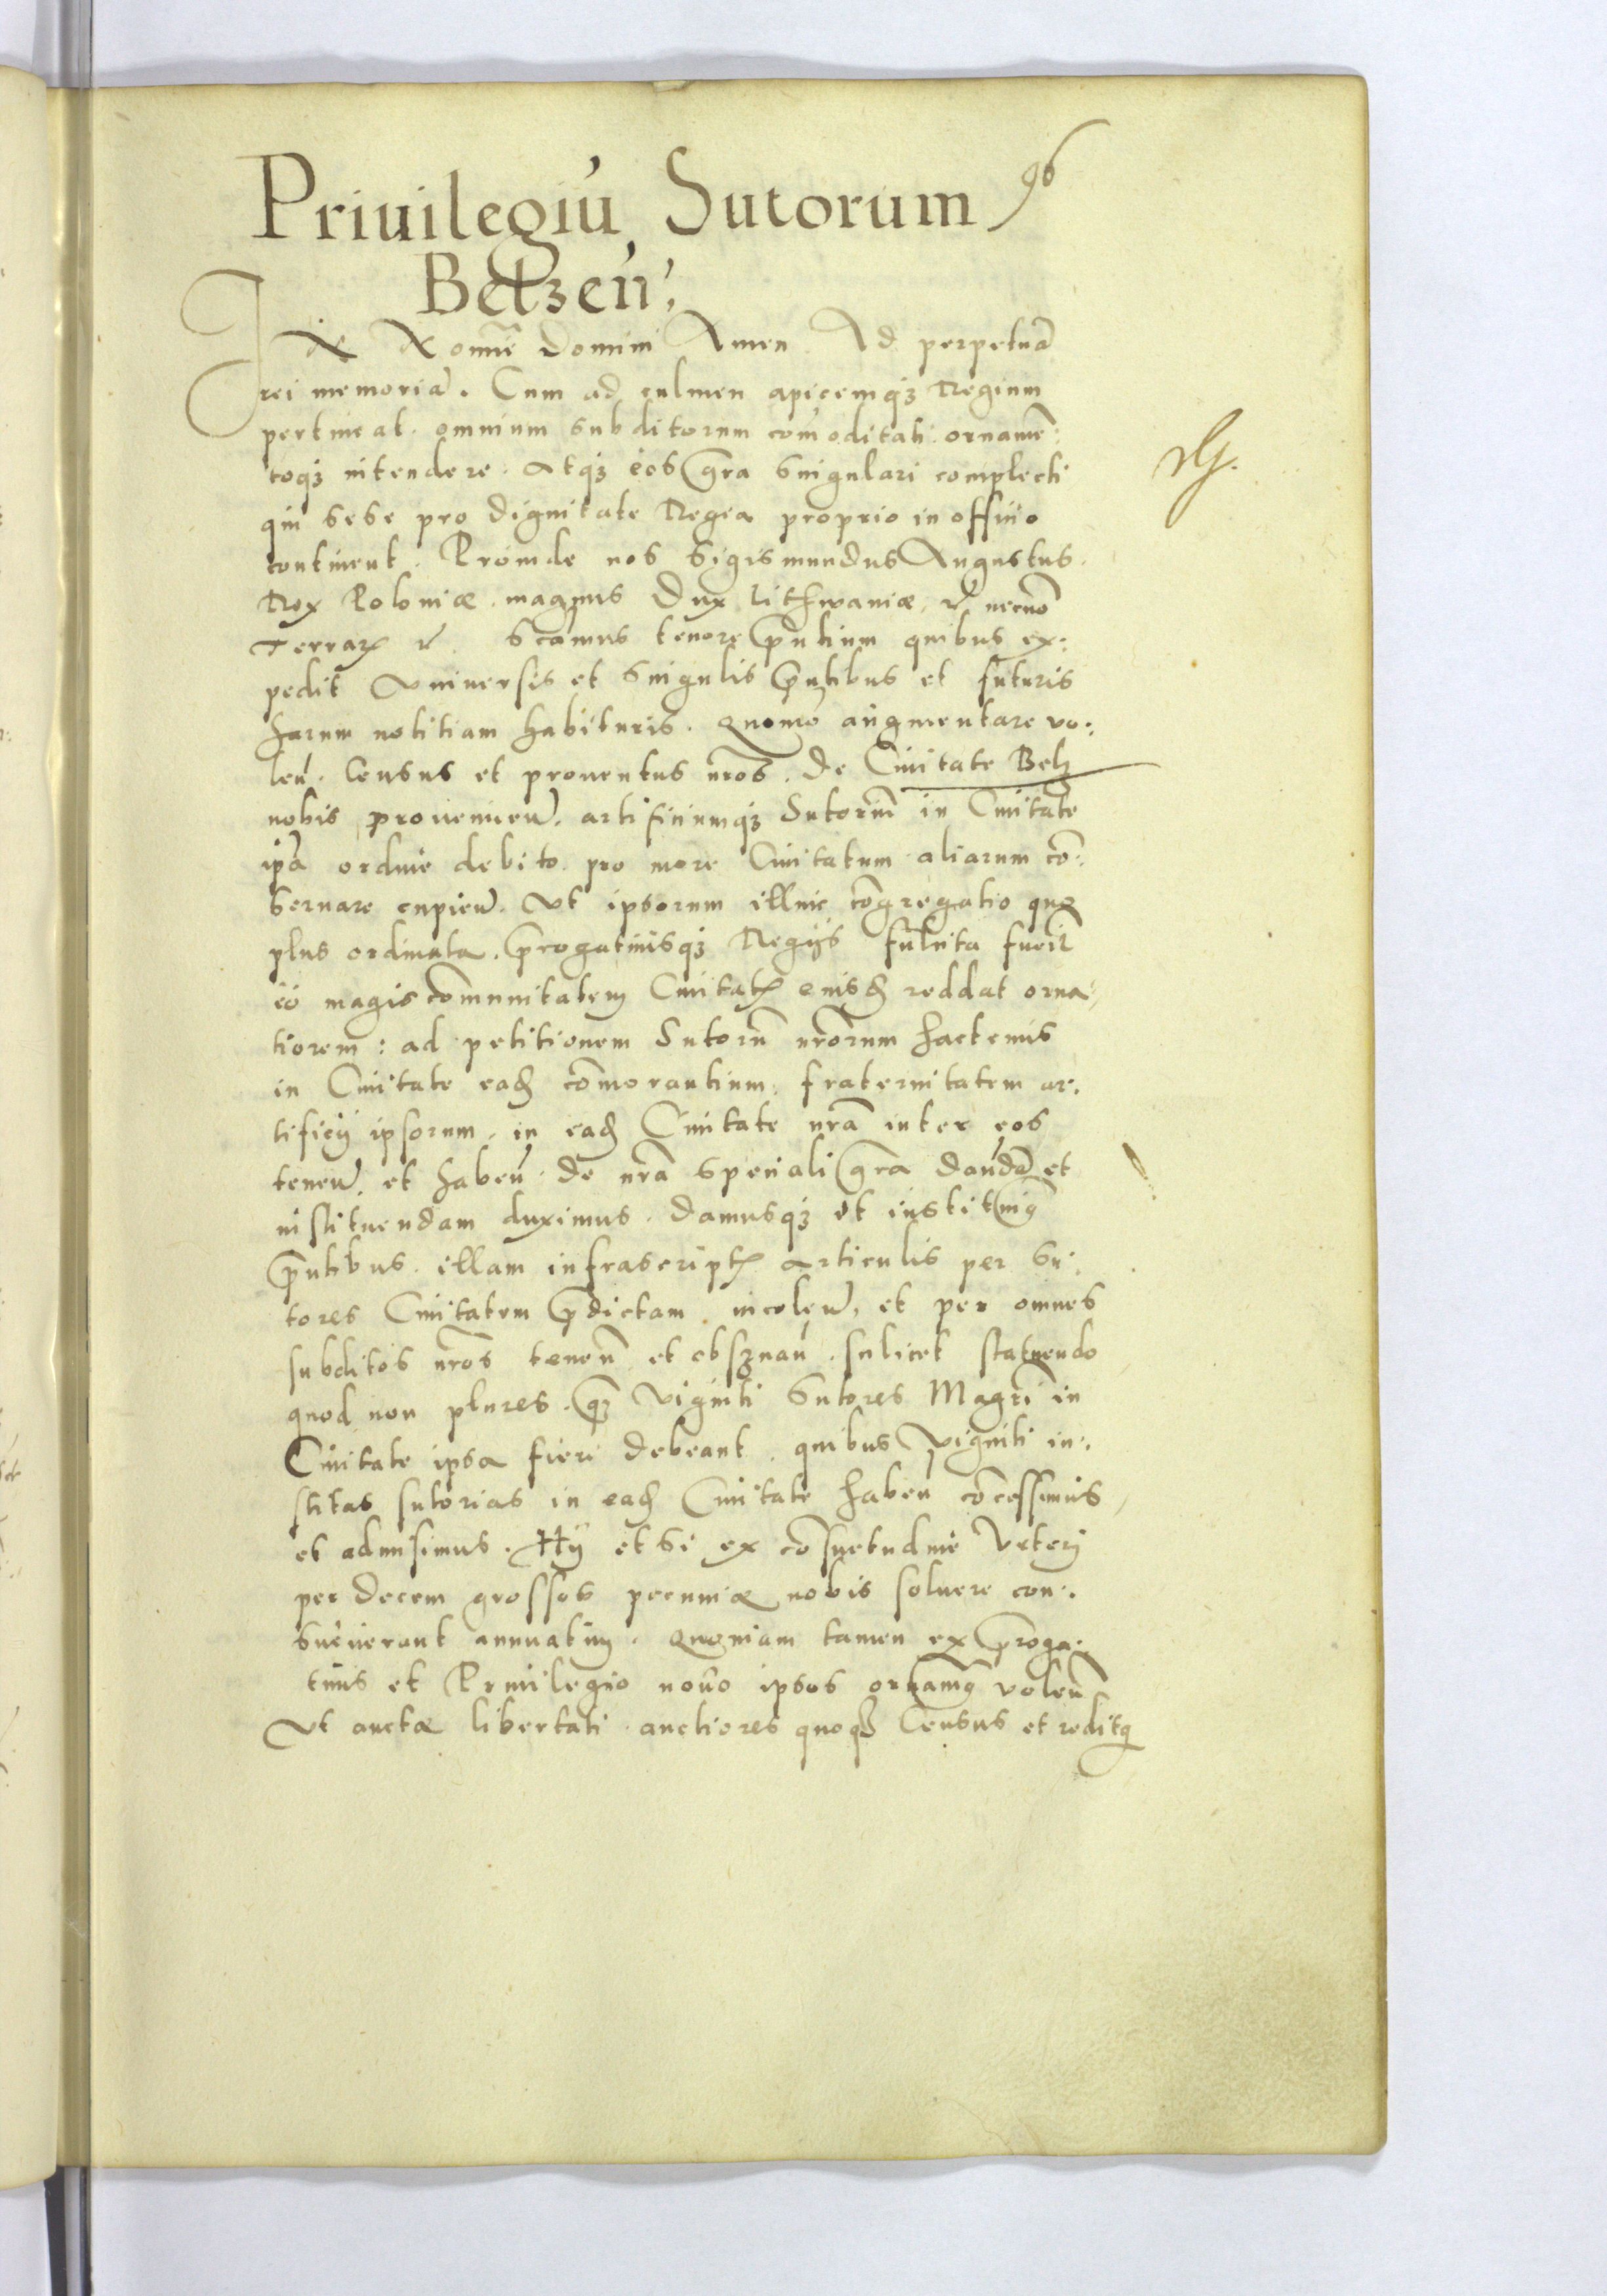 96
Priuilegiū Sutorum
Belzeñ,
IN Nomĩe Domini Amen. Ad perpetuã
rei memoriã. Cum ad culmen apicemqʒ Regium
pertineat. omnium subditorum com̃oditati ornamẽ:
toqʒ intendere. Atqʒ eos gr̃a singulari complecti
qui sese pro dignitate Regia proprio in officio
continent. Proinde nos Sigismundus Augustus.
Rex Poloniæ. magnus Dux Lithwaniæ, necnõ
Terrarꝝ Scamus tenore p̃ntium quibus ex:
pedit Vniuersis et singulis p̃ntibus et futuris
harum notitiam habituris. Quomõ augmentare vo:
leñ. Census et prouentus nr̃os. de Ciuitate Belz
nobis prouenieñ. artificiumqʒ Sutorũ in Ciuitate
ip̃a ordine debito pro more Ciuitatum aliarum cõ:
seruare cupieñ. Vt ipsorum illuic congregatio quo
plus ordinata. p̃rogatiuisqʒ Regijs fulcita fuerit
eò magis com̃unitatem Ciuitatꝭ eiusd̃ reddat orna:
tiorem: ad petitionem Sutorũ nr̃orum hactenus
in Ciuitate ead̃ com̃orantium. fraternitatem ar:
tificij ipsorum. in ead̃ Ciuitate nr̃a inter eos
teneñ. et habeñ. de nr̃a speciali gr̃a dandã et
instituendam duximus. damusqʒ et instituimꝰ
p̃ntibus. illam infrascriptꝭ articulis per Su:
tores Ciuitatem p̃dictam incoleñ, et per omnes
subditos nr̃os teneñ et obseruañ. scilicet statuendo
quod non plures. qʒ viginti Sutores Magr̃i in
Ciuitate ipsa fieri debeant. quibus viginti in:
stitas sutorias in ead̃ Ciuitate habeñ concessimus
et admisimus. Hij etsi ex consuetudine Veterj
per decem grossos pecuniæ nobis soluere con:
sueuerant annuatim. Quoniam tamen ex p̃roga:
tiuis et Priuilegio nouo ipsos ornamꝰ voleñ
Vt auctæ libertati auctiores quoqʒ Census et reditꝰ